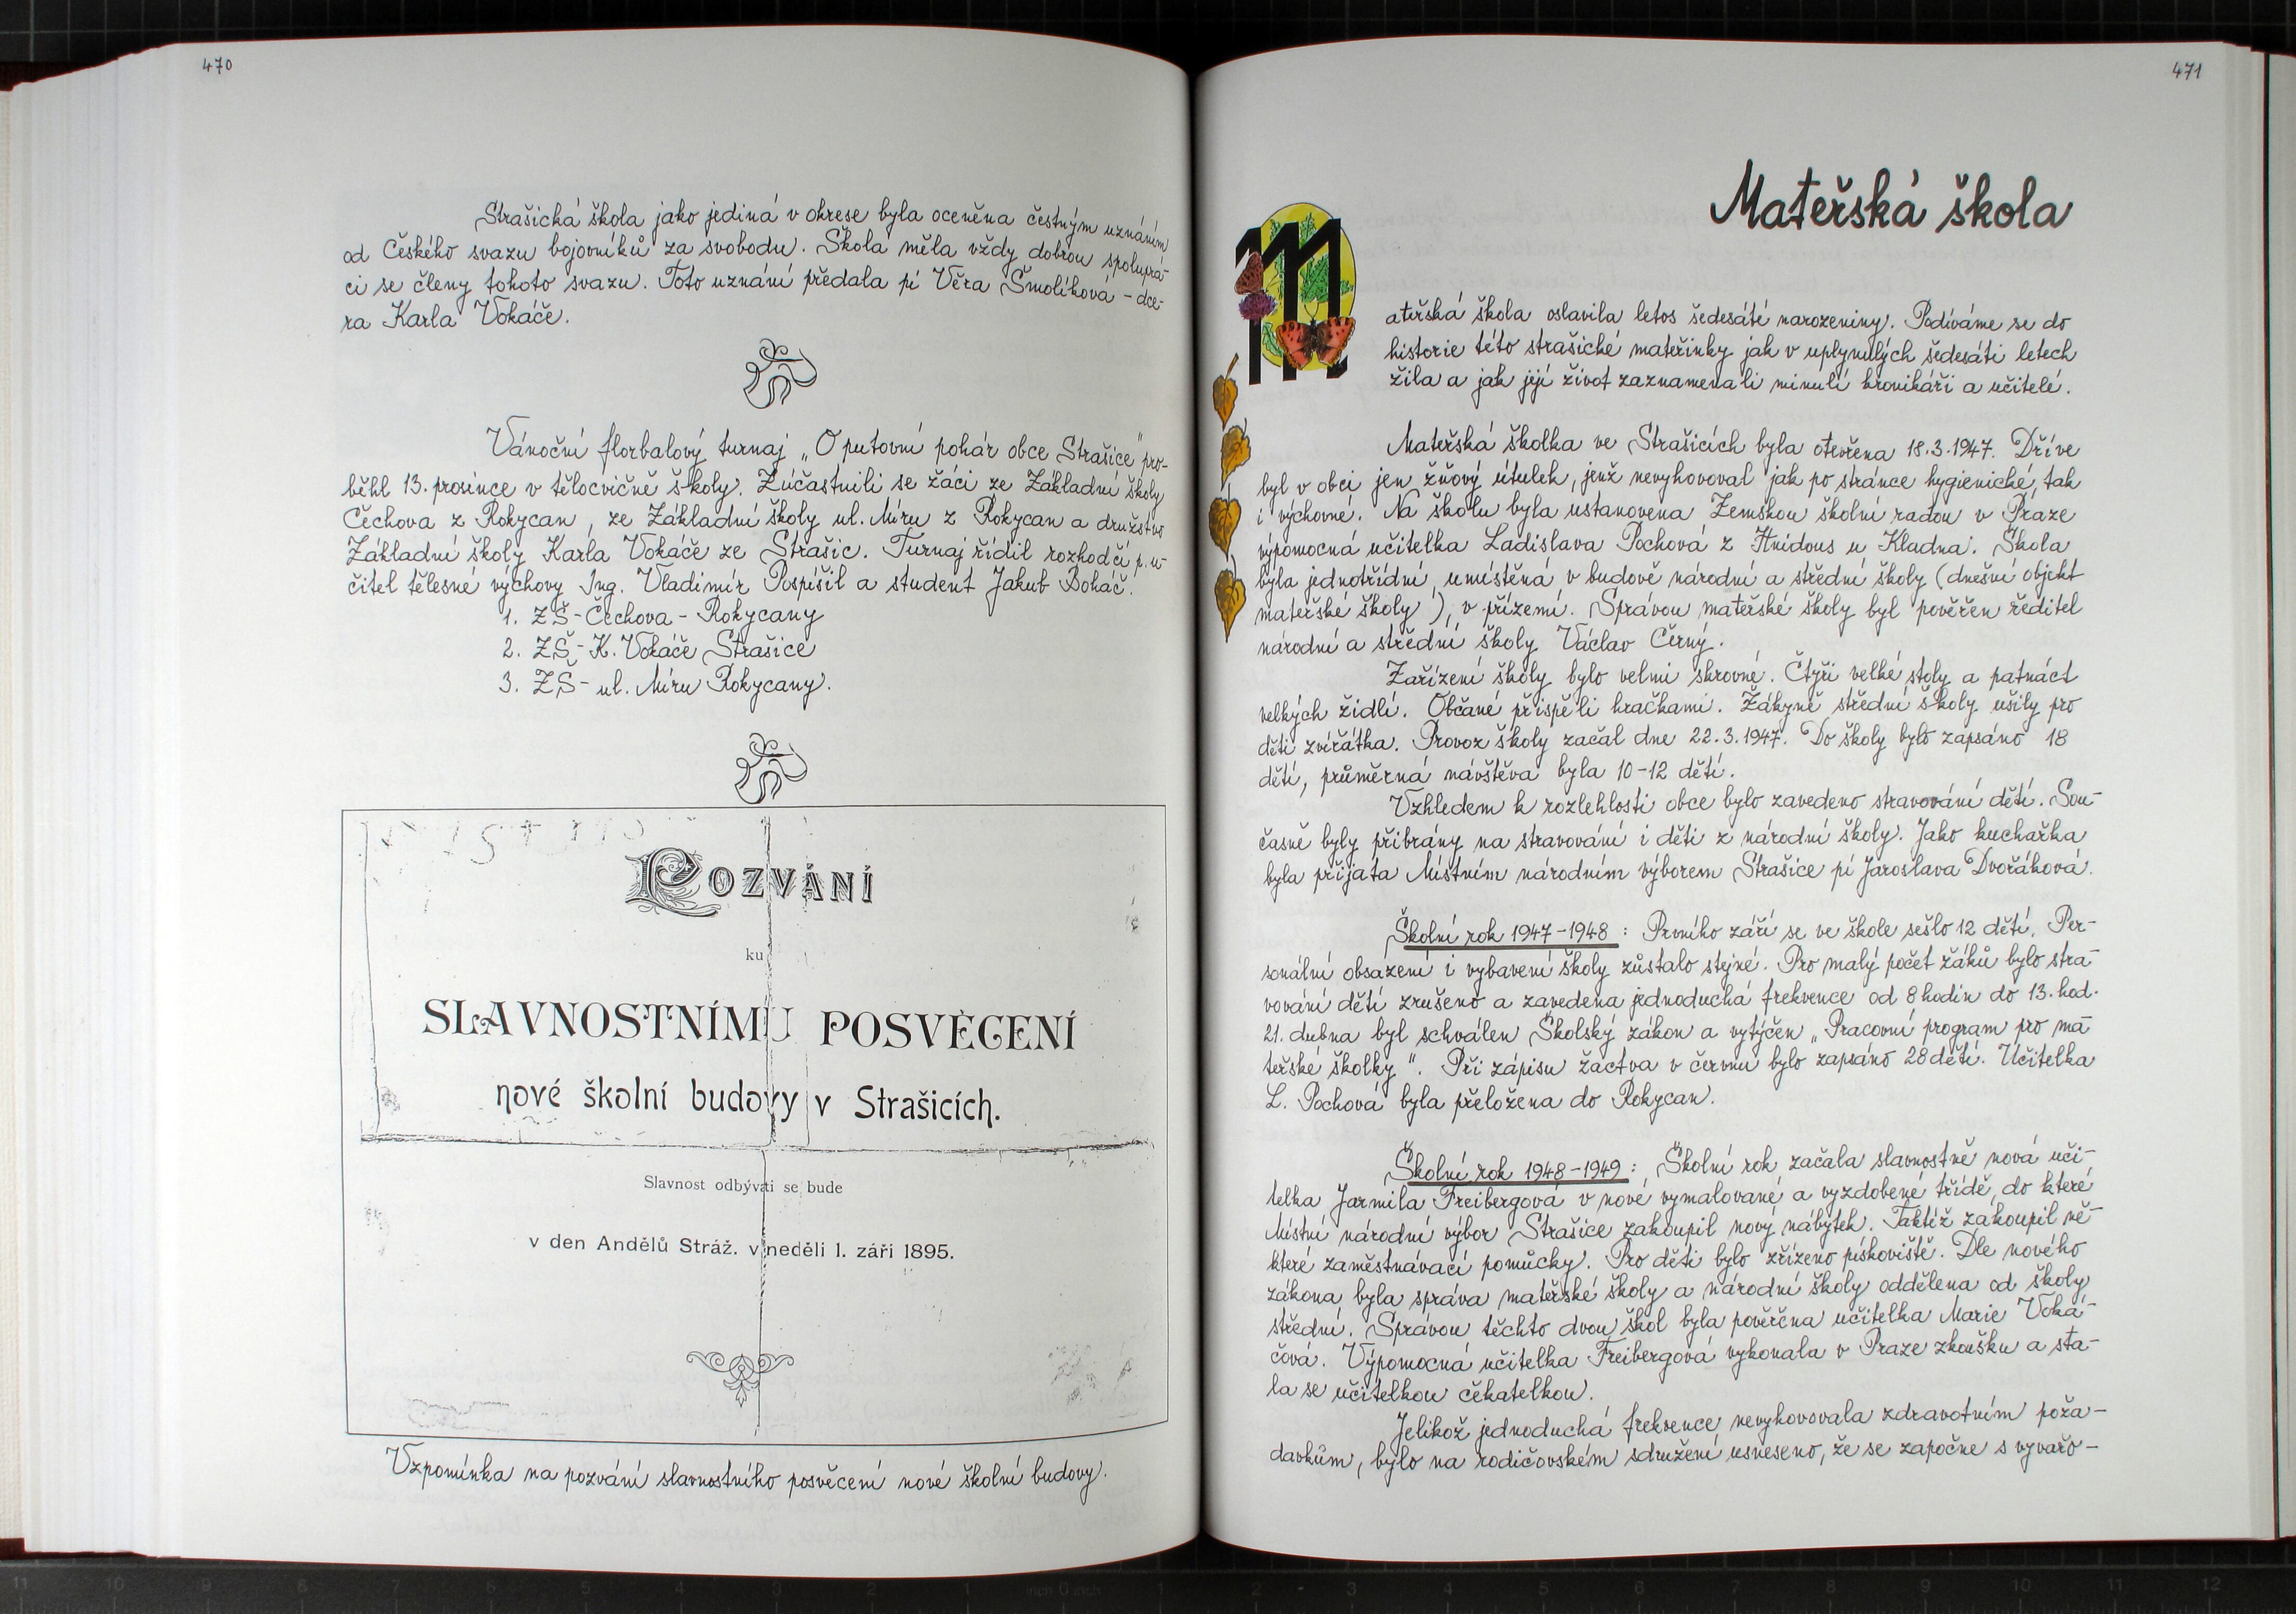 470
Strašická škola jako jediná v okrese byla oceněna čestným uznáním
od Českého svazu bojovníků za svobodu. Škola měla vždy dobrou spoluprá-
ci se členy tohoto svazu. Toto uznání předala pí Věra Šmolíková - dce-
ra Karla Vokáče.
Vánoční florbalový turnaj „O putovní pohár obce Strašice" pro-
běhl 13. prosince v tělocvičně školy. Zúčastnili se žáci ze Základní školy
Čechova z Rokycan, ze Základní školy ul. Míru z Rokycan a družstvo
Základní školy Karla Vokáče ze Strašic. Turnaj řídil rozhodčí p. u-
čitel tělesné výchovy Ing. Vladimír Pospíšil a student Jakub Boháč.
1. ZŠ - Čechova - Rokycany
2. ZŠ - K. Vokáče Strašice
3. ZŠ - ul. Míru Rokycany.
POZVÁNÍ
ku
SLAVNOSTNÍMU POSVĚCENÍ
nové školní budovy v Strašicích.
Slavnost odbývati se bude
v den Andělů Stráž. v neděli 1. září 1895.
Vzpomínka na pozvání slavnostního posvěcení nové školní budovy.
471
Mateřská škola
M
ateřská škola oslavila letos šedesáté narozeniny. Podíváme se do
historie této strašické mateřinky jak v uplynulých šedesáti letech
žila a jak její život zaznamenali minulí kronikáři a učitelé.
Mateřská školka ve Strašicích byla otevřena 18.3.1947. Dříve
byl v obci jen žňový útulek, jenž nevyhovoval jak po stránce hygienické, tak
i výchovné. Na školu byla ustanovena Zemskou školní radou v Praze
výpomocná učitelka Ladislava Pochová z Hnidous u Kladna. Škola
byla jednotřídní, umístěná v budově národní a střední školy (dnešní objekt
mateřské školy), v přízemí. Správou mateřské školy byl pověřen ředitel
národní a střední školy Václav Černý.
Zařízení školy bylo velmi skrovné. Čtyři velké stoly a patnáct
velkých židlí. Občané přispěli hračkami. Žákyně střední školy ušily pro
děti zvířátka. Provoz školy začal dne 22.3.1947. Do školy bylo zapsáno 18
dětí, průměrná návštěva byla 10-12 dětí.
Vzhledem k rozlehlosti obce bylo zavedeno stravování dětí. Sou-
časně byly přibrány na stravování i děti z národní školy. Jako kuchařka
byla přijata Místním národním výborem Strašice pí Jaroslava Dvořáková.
Školní rok 1947-1948 : Prvního září se ve škole sešlo 12 dětí. Per-
sonální obsazení i vybavení školy zůstalo stejné. Pro malý počet žáků bylo stra-
vování dětí zrušeno a zavedena jednoduchá frekvence od 8 hodin do 13. hod.
21. dubna byl schválen Školský zákon a vytýčen „Pracovní program pro ma-
teřské školky". Při zápisu žactva v červnu bylo zapsáno 28 dětí. Učitelka
L. Pochová byla přeložena do Rokycan.
Školní rok 1948-1949 : Školní rok začala slavnostně nová uči-
telka Jarmila Freibergová v nové vymalované a vyzdobené třídě, do které
Místní národní výbor Strašice zakoupil nový nábytek. Taktéž zakoupil ně-
které zaměstnávací pomůcky. Pro děti bylo zřízeno pískoviště. Dle nového
zákona byla správa mateřské školy a národní školy oddělena od školy
střední. Správou těchto dvou škol byla pověřena učitelka Marie Voká-
čová. Výpomocná učitelka Freibergová vykonala v Praze zkoušku a sta-
la se učitelkou čekatelkou.
Jelikož jednoduchá frekvence nevyhovovala zdravotním poža-
davkům, bylo na rodičovském sdružení usneseno, že se započne s vyvařo-